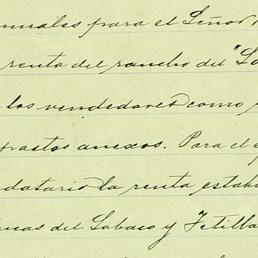 anuales para el Señor
renta del rancho del "Lo
los vendedores como
pactos anexos. Para el
datario la renta estab
incas del Lobaco y Tetilla